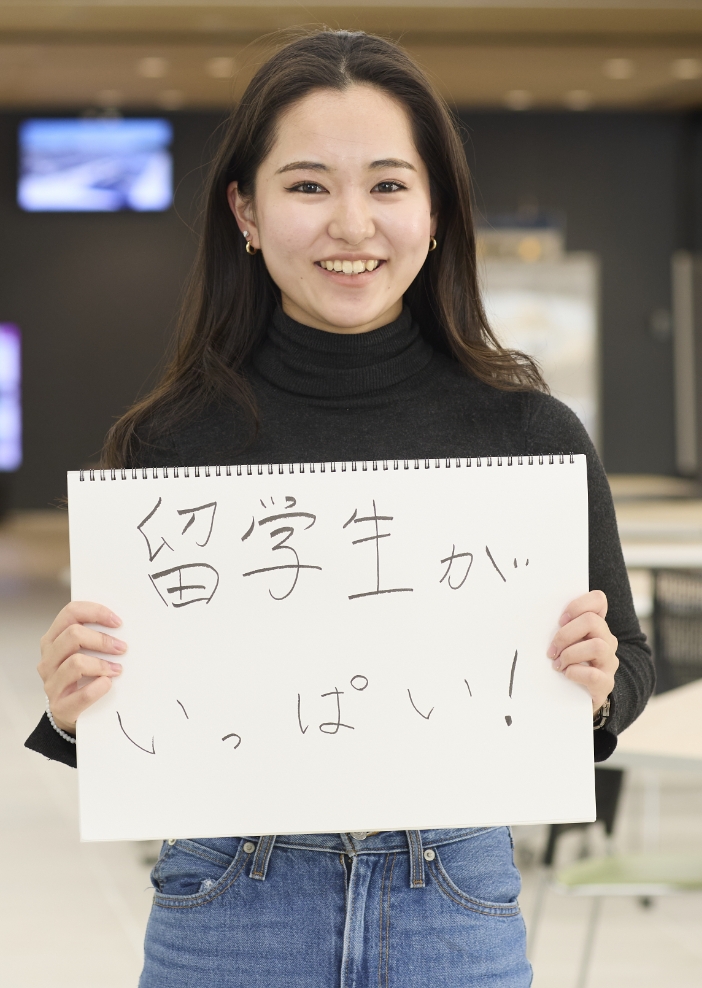 留学生が
いっぱい!